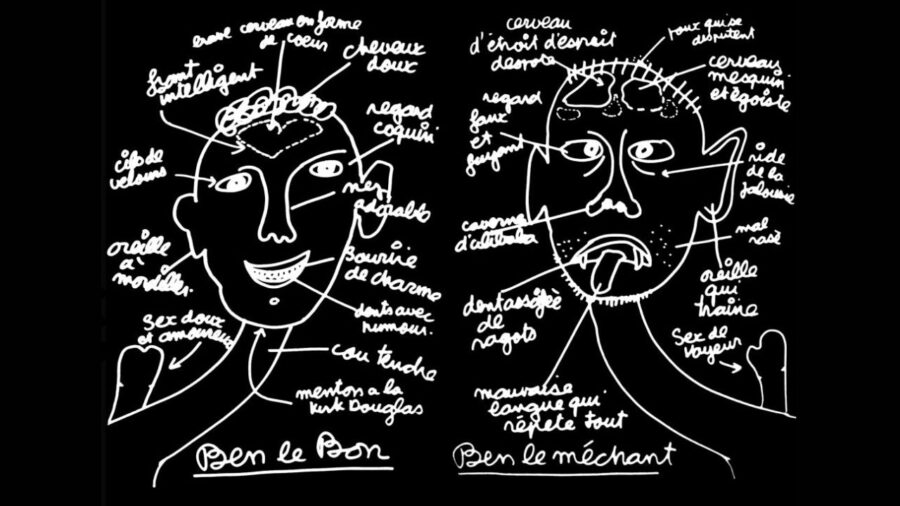 brave cerveau en forme
de coeur
front
intelligent
cheveux
doux
regard
coquin
cils de
velours
nez
adorable
oreille
à
mordiller
Bourire
de charme
dents avec
humour.
sex doux
et amoureux
cou tendre
menton a la
Kirk Douglas
Ben le Bon
cerveau
d'étroit d'esprit
despote
poux qui se
disputent
cerveau
mesquin
et égoïste
regard
faux
et
fuyant
ride
de la
jalousie
caverne
d'alibaba
mal
rasé
dent assoiffée
de
ragots
oreille
qui
traine
Sex de
voyeur
mauvaise
langue qui
répète tout
Ben le méchant